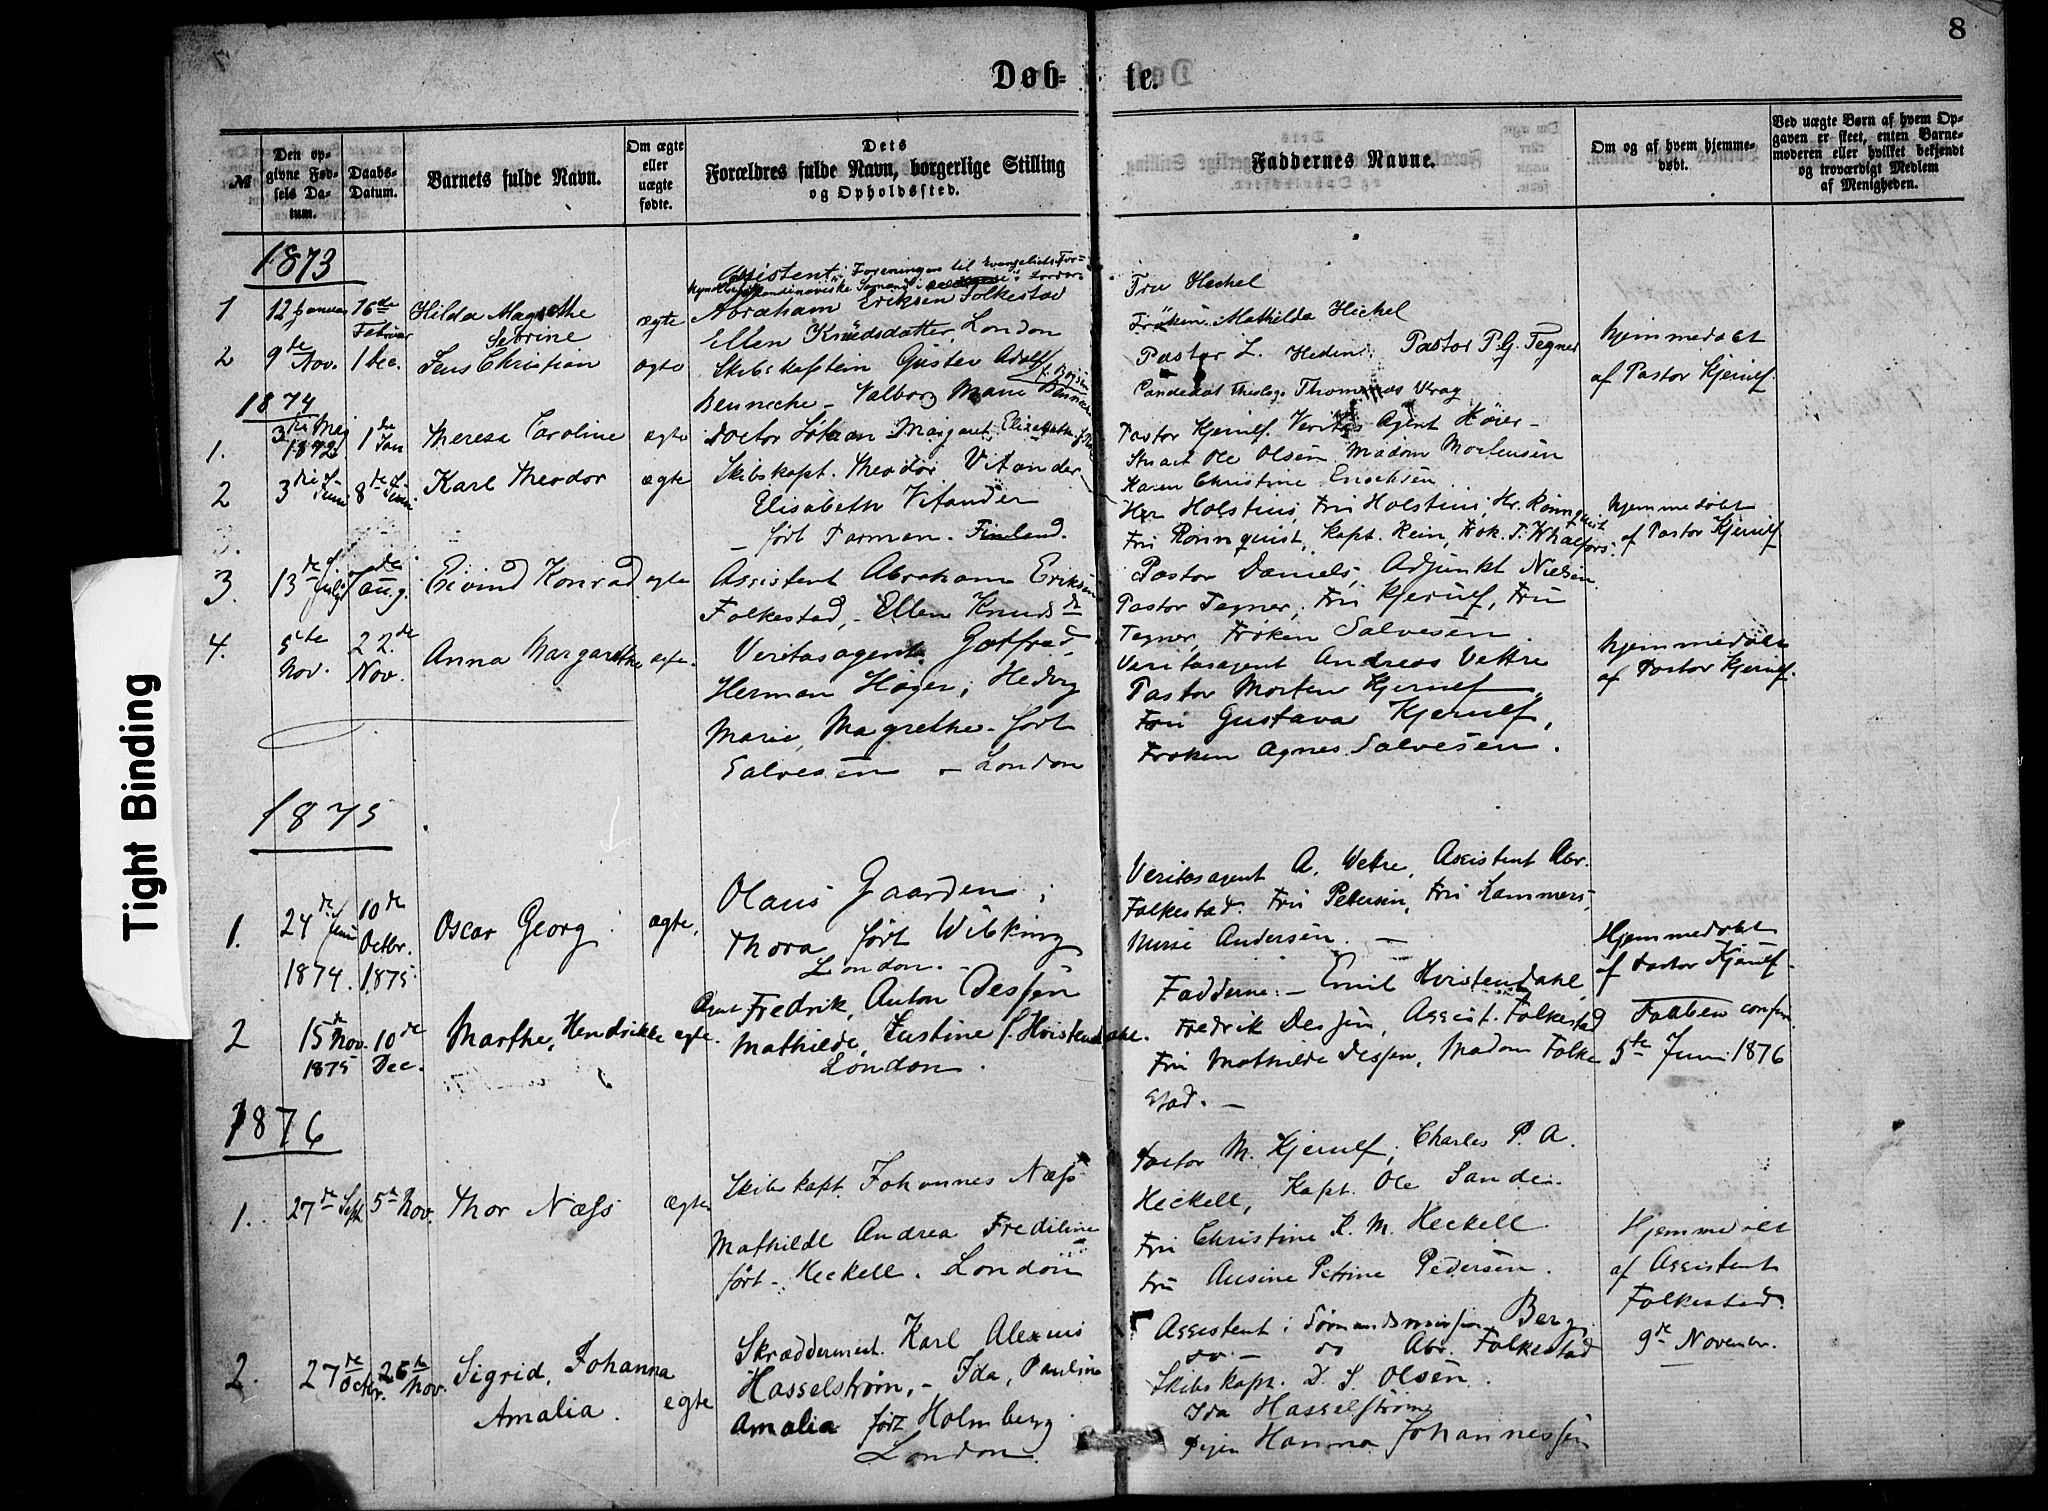 8
Døb- te.
№
Den opgivne Fødsels Datum.
Daabs-Datum.
Barnets fulde Navn.
Om ægte eller uægte fødte.
Dets Forældres fulde Navn, borgerlige Stilling og Opholdssted.
Faddernes Navne.
Om og af hvem hjemmedøbt.
Ved uægte Børn af hvem Opgaven er skeet, enten Barnemoderen eller hvilket bekjendt og troværdigt Medlem af Menigheden.
1873
1 12 Januar 16de Februar Hilda Magrethe Sevrine ægte
Assistent i Foreningen til Evangeliets For-
kyndelse skandinaviske Sømænd i London
Abraham Eriksen Folkestad
Ellen Knudsdatter, London
Fru Heckel
Frøken Mathilda Hickel
2 9de Nov. 1 Dec. Jens Christian ægte
Skibskaptein Gustav Adolf
Bennecke - Valborg Marie
Pastor L. Heden Pastor P. G. Tegner
Candidat Theolog. Thomas Vrag
hjemmedøbt
af Pastor Kjerulf.
1874
1. 3die Maj 1873 1de Jan Theresa Caroline ægte
Doctor Margaret Elizabeth
Pastor Kjerulf. Veritas Agent Höier -
Stuart Ole Olsen Madam Mortensen
Karen Christine Enochsen
2 3die Juni 8de Juni Karl Theodor ægte
Skibskapt. Theodor Vitander
Elisabeth Vitander
- født Forman - Finland.
Hr Holstius, Fru Holstius, Hr. Rönnquist
Fru Rönnquist, Kapt. Rein,
hjemmedøbt
af Pastor Kjerulf
3. 13de Juli aug. Eivind Konrad ægte
Assistent Abraham Eriksen
Folkestad, - Ellen Knudsd
Pastor Daniels, Adjunkt Nielsen
Pastor Tegner, Fru Kjerulf, Fru
Tegner, Frøken Salvesen.
4. 5te Nov. 22de Nov. Anna Margarethe ægte.
Veritasagent Gotfred
Herman Hoyer, Hedvig
Marie, Magrethe - født
Salvesen - London
Veritasagent Andreas Vettre
Pastor Morten Kjerulf
Fru Gustava Kjerulf,
Frøken Agnes Salvesen.
hjemmedøbt
af Pastor Kjerulf.
1875
1. 24de Juni 1874. 10de Octbr. 1875. Oscar Georg ægte,
Olaus Gaarden;
Thora, født Wibking
London. -
Veritasagent A. Vettre, Assistent Abr.
Folkestad. Fru Petersen, Fru Lammers,
Nurse Andersen. -
Hjemmedøbt
af Pastor Kjerulf -
2 15de Nov. 1875 10de Dec. Marthe, Hendrikke egte.
Agent Fredrik, Anton Dessen
Mathilde, Justine f. Hvistendahl.
London.
Fadderne: - Emil Hvistendahl,
Fredrik Dessen, Assist. Folkestad
Fru Mathilde Dessen, Madam Folke
stad. -
Daaben confir.
5te Juni 1876
1876
1. 27de Sept 5te Nov. Thor Næss ægte
Skibskapt. Johannes Næss
Mathilde Andrea Frediline
født - Heckell. London
Pastor M. Kjerulf, Charles P. A.
Heckell, Kapt. Ole Sande.
Fru Christine K. M. Heckell.
Fru Ausine Petrine Pedersen.
Hjemmedøbt
af Assistent
Folkestad.
9de November.
2. 27de Octbr. 26de Nov. Sigrid, Johanna
Amalia. egte
Skræddermest. Karl Alexius
Hasselstrøm, - Ida, Pauline
Amalia født Holmberg
London
Assistent i Sømandsmissionen Berg
do. - do Abr. Folkestad
Skibskapt. D. S. Olsen.
Ida Hasselstrøm
Pigen Hanna Johannessen
Tight Binding